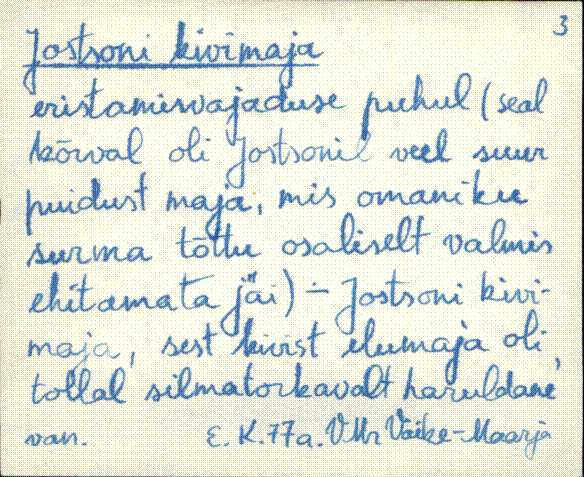 3
Jostsoni kivimaja
eristamisvajaduse puhul (seal
kõrval oli Jostsonil veel suur
puidust maja, mis omaniku
surma tõttu osaliselt valmis
ehitamata jäi) – Jostsoni kivi-
maja, sest kivist elumaja oli
tollal silmatorkavalt haruldane
van. E. K. 77a. VMr Väike-Maarja